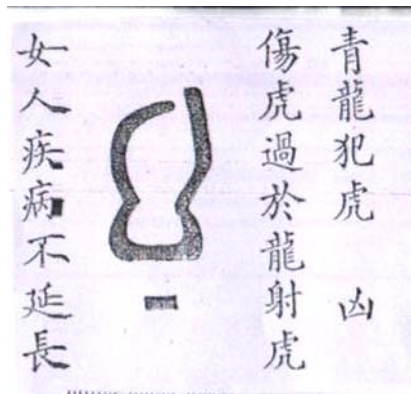 青龍犯虎 凶
傷虎過於龍射虎
女人疾病不延長